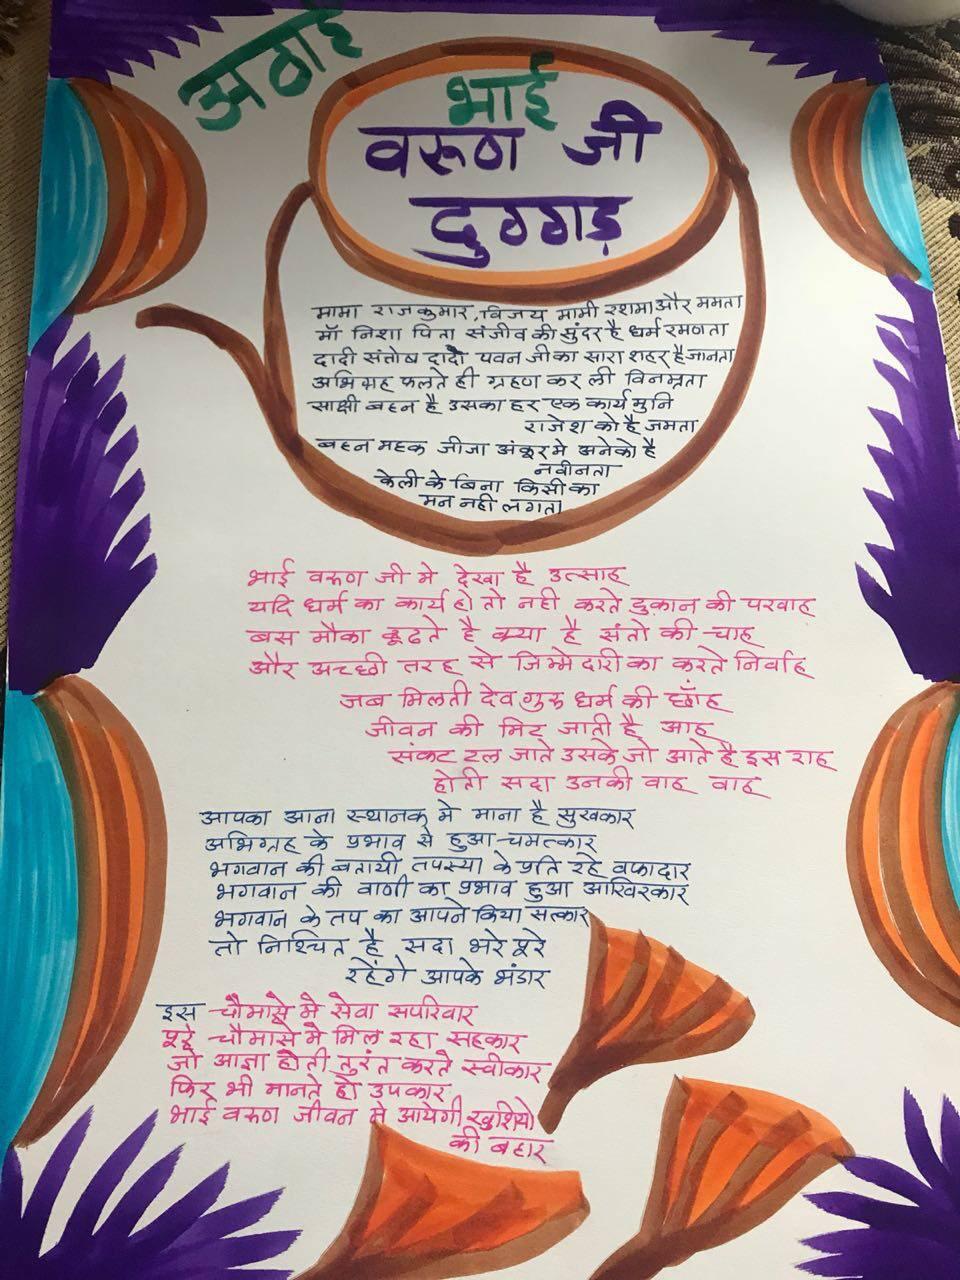 अठाई
भाई
वरूण जी
दुग्गड़
मामा राजकुमार, विजय मामी रशमा और ममता
माँ निशा पिता संजीव की सुंदर है धर्म रमणता
दादी संतोष दादा पवन जी का सारा शहर है जानता
अभिग्रह फलते ही ग्रहण कर ली विनम्रता
साक्षी बहन है उसका हर एक कार्य मुनि
राजेश को है जमता
बहन महक जीजा अंकूर मे अनेको है
नवीनता
केली के बिना किसी का
मन नही लगता
भाई वरूण जी मे देखा है उत्साह
यदि धर्म का कार्य हो तो नही करते दुकान की परवाह
बस मौका ढूढते है क्या है संतो की चाह
और अच्छी तरह से जिम्मेदारी का करते निर्वाह
जब मिलती देव गुरू धर्म की छाँह
जीवन की मिट जाती है आह
संकट टल जाते उसके जो आते है इस राह
होती सदा उनकी वाह वाह
आपका आना स्थानक मे माना है सुखकार
अभिग्रह के प्रभाव से हुआ चमत्कार
भगवान की बतायी तपस्या के प्रति रहे वफादार
भगवान की वाणी का प्रभाव हुआ आखिरकार
भगवान के तप का आपने किया सत्कार
तो निश्चित है सदा भरे पूरे
रहेंगे आपके भंडार
इस चौमासे मे सेवा सपरिवार
पूरे चौमासे मे मिल रहा सहकार
जो आज्ञा होती तुरंत करते स्वीकार
फिर भी मानते हो उपकार
भाई वरूण जीवन मे आयेगी खुशियो
की बहार